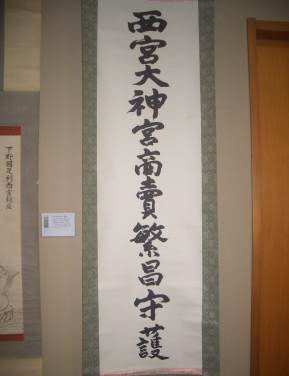 西宮大神宮商賣繁昌守護
下野國足利西宮鎮座